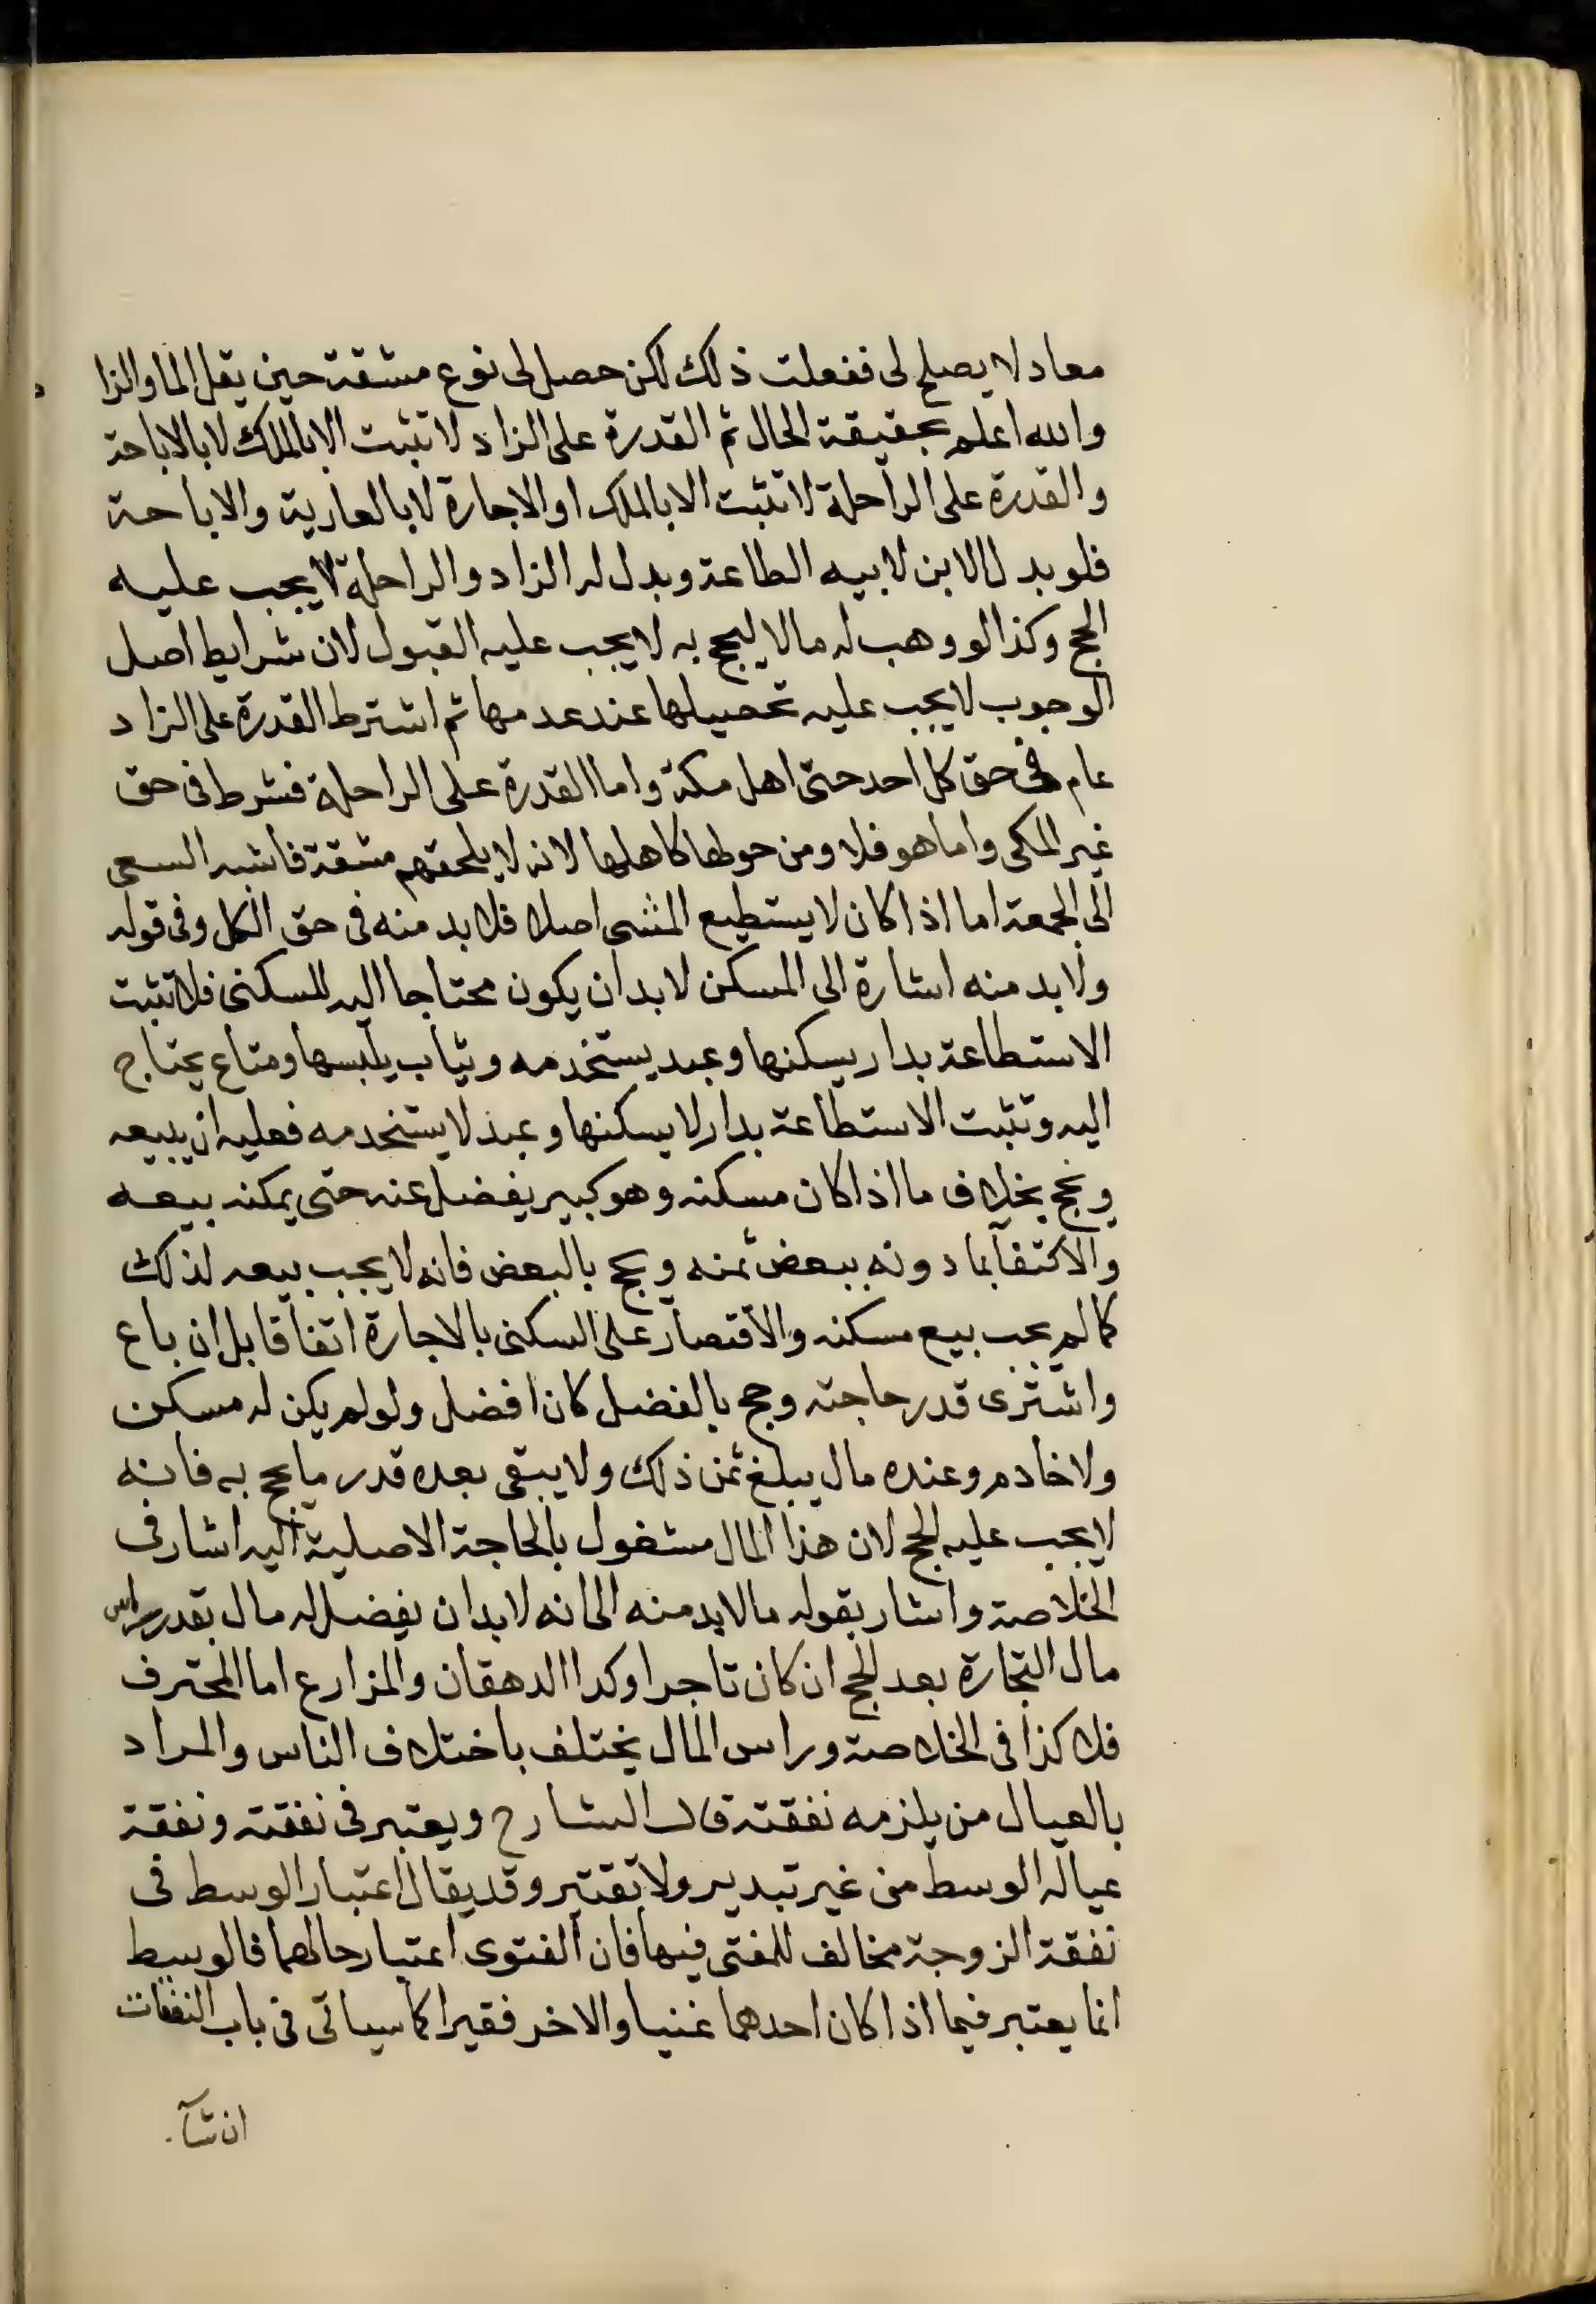 معادلا يصلح لى ففعلت ذلك لكن حصل لى نوع مشقة حين يقل الما والزا
د
والله اعلم بحقيقة الحال ثم القدرة على الزاد لا تثبت الا بالملك لا بالاباحة
والقدرة على الراحلة لا تثبت الا بالملك او الاجارة لا بالعارية والاباحة
فلو بدل الابن لابيه الطاعة وبدل له الزاد والراحلة لا يجب عليه
الحج وكذا لو وهب له مالا ليحج به لا يجب عليه القبول لان شرايط اصل
الوجوب لا يجب عليه تحصيلها عند عدمها ثم اشترط القدرة على الزاد
عام فى حق كل احد حتى اهل مكة واما القدرة على الراحلة فشرط فى حق
غير المكى واما هو فلا ومن حولها كاهلها لانه لا يلحقهم مشقة فاشبه السعى
الى الجمعة اما اذا كان لا يستطيع المشى اصلا فلا بد منه فى حق الكل وفى قوله
ولا بد منه اشارة الى المسكن لا بد ان يكون محتاجا اليه للسكنى فلا تثبت
الاستطاعة بدار يسكنها وعبد يستخدمه وثياب يلبسها ومتاع يحتاج
اليه وتثبت الاستطاعة بدار لا يسكنها وعبد لا يستخدمه فعليه ان يبيعه
ويحج بخلاف ما اذا كان مسكنه وهو كبير يفضل عنه حتى يمكنه بيعه
والاكتفآ بما دونه ببعض ثمنه ويحج بالبعض فانه لا يجب بيعه لذلك
كما لم يجب بيع مسكنه والاقتصار على السكنى بالاجارة اتفاقا بل ان باع
واشترى قدر حاجته وحج بالفضل كان افضل ولو لم يكن له مسكن
ولا خادم وعنده مال يبلغ ثمن ذلك ولا يبقى بعده قدر ما يحج به فانه
لا يجب عليه الحج لان هذا المال مشغول بالحاجة الاصلية اليه اشار فى
الخلاصة واشار بقوله مالا بد منه الى انه لا بد ان يفضل له مال بقدر راس
مال التجارة بعد الحج ان كان تاجرا وكدا الدهقان والمزارع اما المحترف
فلا كذا فى الخلاصة وراس المال يختلف باختلاف الناس والمراد
بالعيال من يلزمه نفقته قال الشارح ويعتبر فى نفقته ونفقة
عياله الوسط من غير تبدير ولا تقتير وقد يقال اعتبار الوسط فى
نفقة الزوجة مخالف للمفتى فيها فان الفتوى اعتبار حالهما فالوسط
انما يعتبر فيما اذا كان احدهما غنيا والاخر فقيرا كما سياتى فى باب النفقات
ان شآ